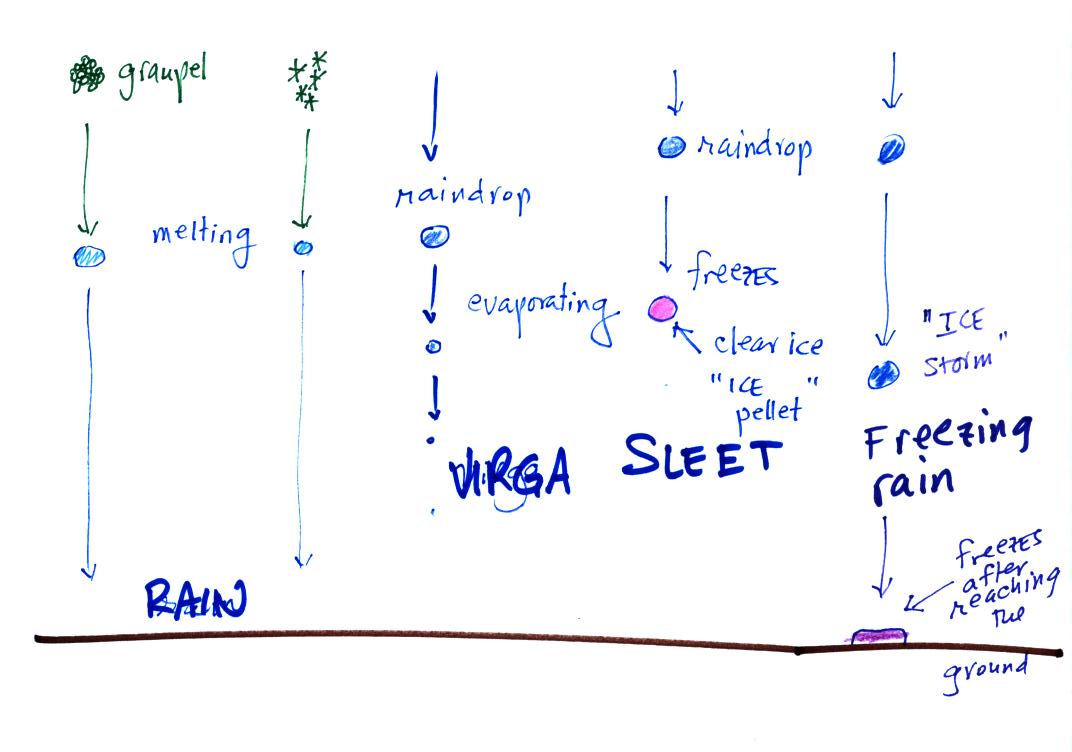 graupel
melting
RAIN
raindrop
evaporating
VIRGA
raindrop
freezes
clear ice
"ICE "
pellet
SLEET
"ICE
storm"
Freezing
rain
freezes
after
reaching
the
ground